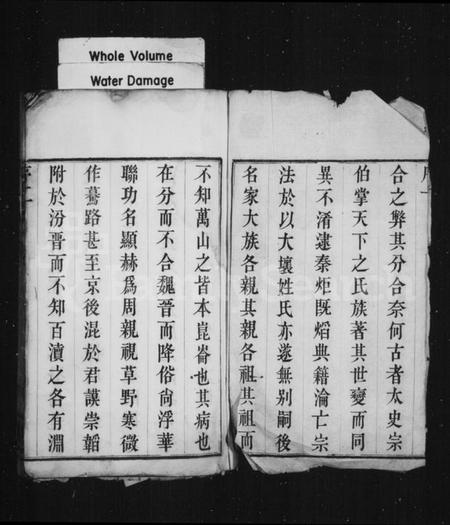 Whole Volume
Water Damage
合之弊其分合奈何古者太史宗
伯掌天下之氏族著其世變而同
異不淆逮秦炬既熖典籍淪亡宗
法於以大壞姓氏亦遂無别嗣後
名家大族各親其親各祖其祖而
不知萬山之皆本崑崙也其病也
在分而不合魏晉而降俗尚浮華
聯功名顯赫爲周親視草野寒微
作驀路甚至京後混於君謨崇韜
附於汾晉而不知百瀆之各有淵
序二